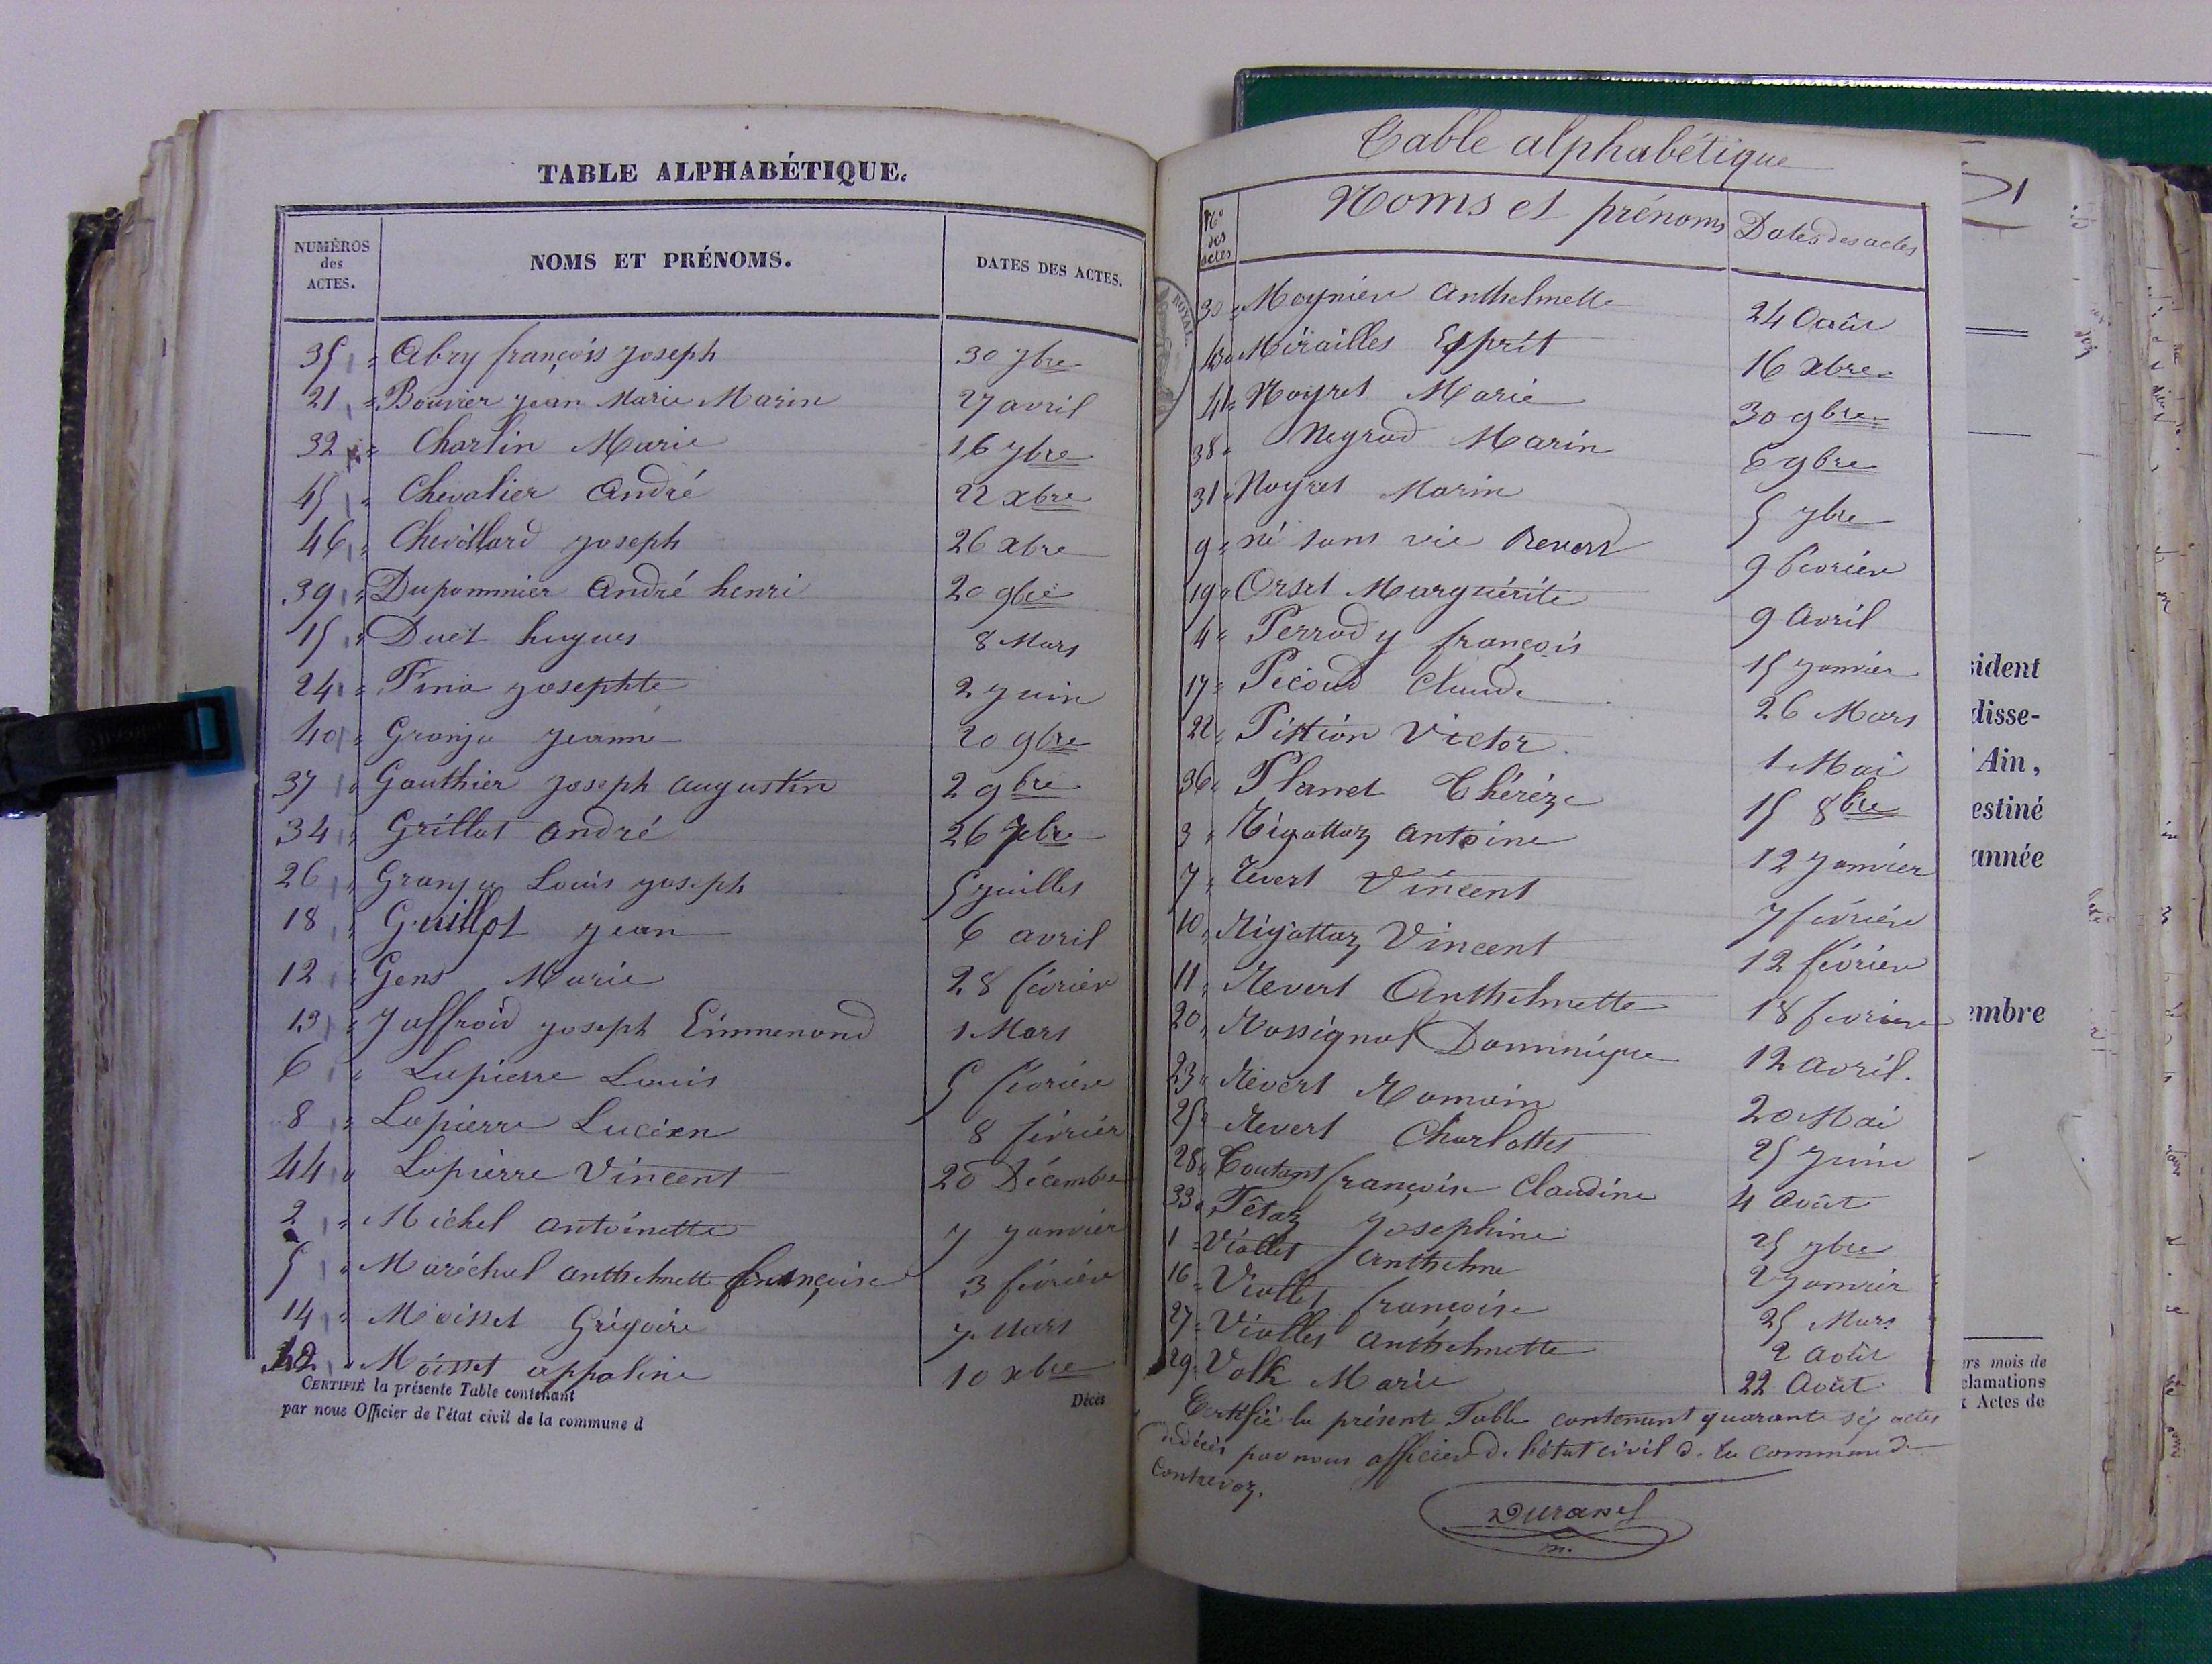 TABLE ALPHABÉTIQUE.
NUMÉROS des ACTES. NOMS ET PRÉNOMS. DATES DES ACTES.
35 " Abry françois joseph 30 7bre
21 " Bouvier jean Marie Marin 27 avril
32 " Charlin Marie 16 7bre
45 " Chevalier André 22 xbre
46 " Chevillard joseph 26 xbre
39 " Dupommier André henri 20 9bre
15 " Duet hugues 8 Mars
24 " Fina josephte 2 juin
40 " Granja jeanne 20 9bre
37 " Gauthier joseph augustin 2 9bre
34 " Grillot andré 26 7bre
26 " Granja Louis joseph 5 juillet
18 " Guillot jean 6 avril
12 " Gens Marie 28 février
13 " Joffroid joseph Emmenond 1 Mars
6 " Lapierre Louis 5 février
8 " Lapierre Lucien 8 février
44 " Lapierre Vincent 20 Décembre
2 " Michel antoinette 7 janvier
5 " Maréchal anthelmette françoise 3 février
14 " Moisset Grégoire 7 Mars
42 " Moisset appoline 10 xbre
CERTIFIÉ la présente Table contenant Décès
par nous Officier de l'état civil de la commune d
Table alphabétique
Nos des actes Noms et prénoms Dates des actes
ROYAL
30 " Moynier Anthelmette 24 Août
Mirailles Esprit 16 xbre
41 " Noyret Marie 30 9bre
38 " Neyrod Marin 6 9bre
31 " Noyret Marin 5 7bre
9 " né sans vie Revert 9 février
19 " Orset Marguérite 9 avril
4 " Perrody françois 15 janvier
17 " Picoud Claude 26 Mars
22 " Pittion Victor 1 Mai
36 " Planet Thérèze 15 8bre
3 " Rigottaz antoine 12 janvier
7 " Revert Vincent 7 février
10 " Rigottaz Vincent 12 février
11 " Revert Anthelmette 18 février
20 " Rossignol Dominique 12 avril.
23 " Revert Romain 20 Mai
25 " Revert Charlottes 25 juin
28 " Toutant françoise Claudine 4 août
33 " Têtaz Josephine 25 7bre
1 " Viollet Anthelme 2 janvier
16 " Viollet françoise 25 Mars
27 " Viollet anthelmette 2 août
29 " Volk Marie 22 Août
Certifié la présente Table contenant quarante six actes
de décès par nous officier de l'état civil de la commune de
Contrevoz.
Durand
m.
sident
disse-
Ain,
estiné
année
embre
ers mois de
clamations
Actes de